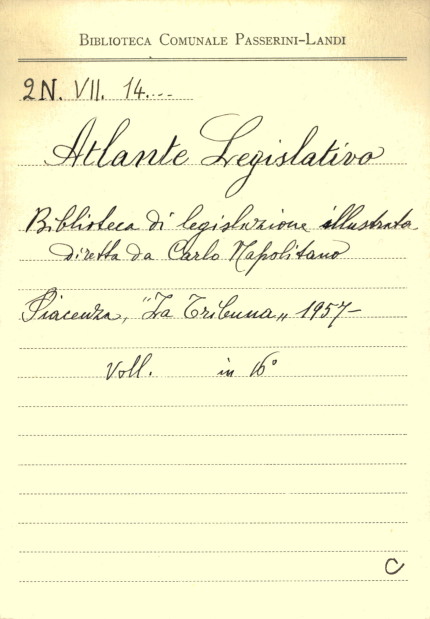 BIBLIOTECA COMUNALE PASSERINI-LANDI
2N. VII. 14....
Atlante Legislativo
Biblioteca di legislazione illustrata
diretta da Carlo Napolitano
Piacenza, "La Tribuna„ 1957-
Voll. in 16°
C